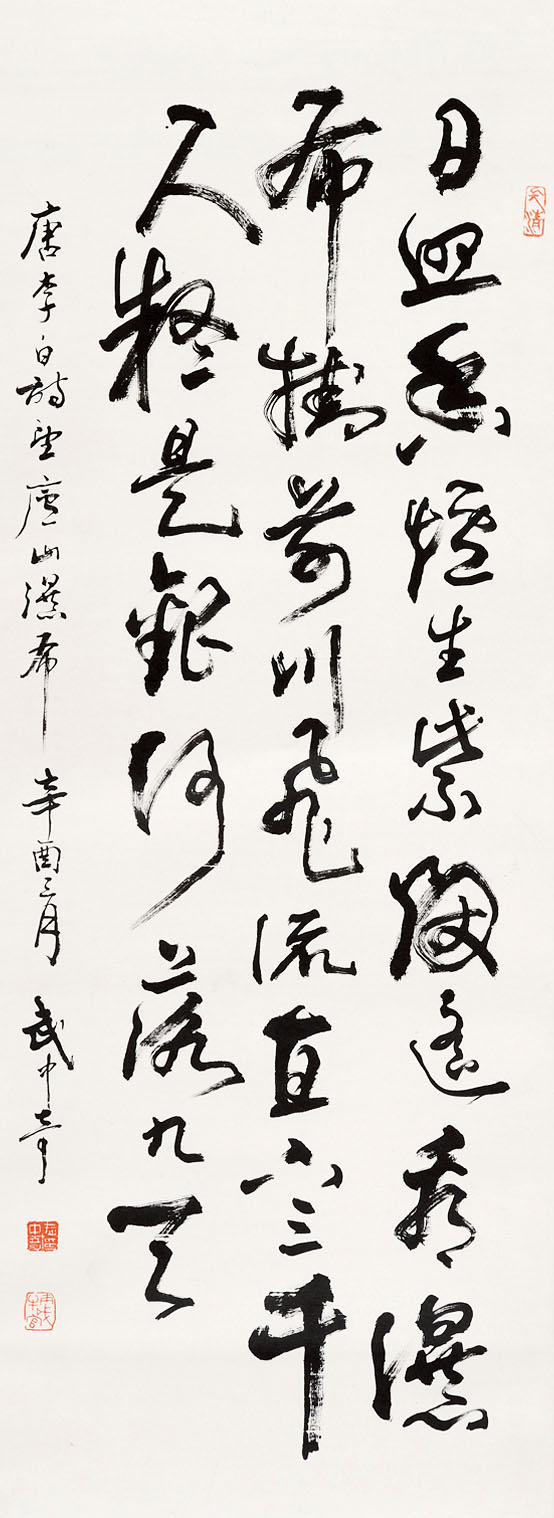 日照香爐生紫烟遙看瀑
布掛前川飛流直下三千
尺疑是銀河落九天
唐李白詩望廬山瀑布 辛酉三月 武中奇